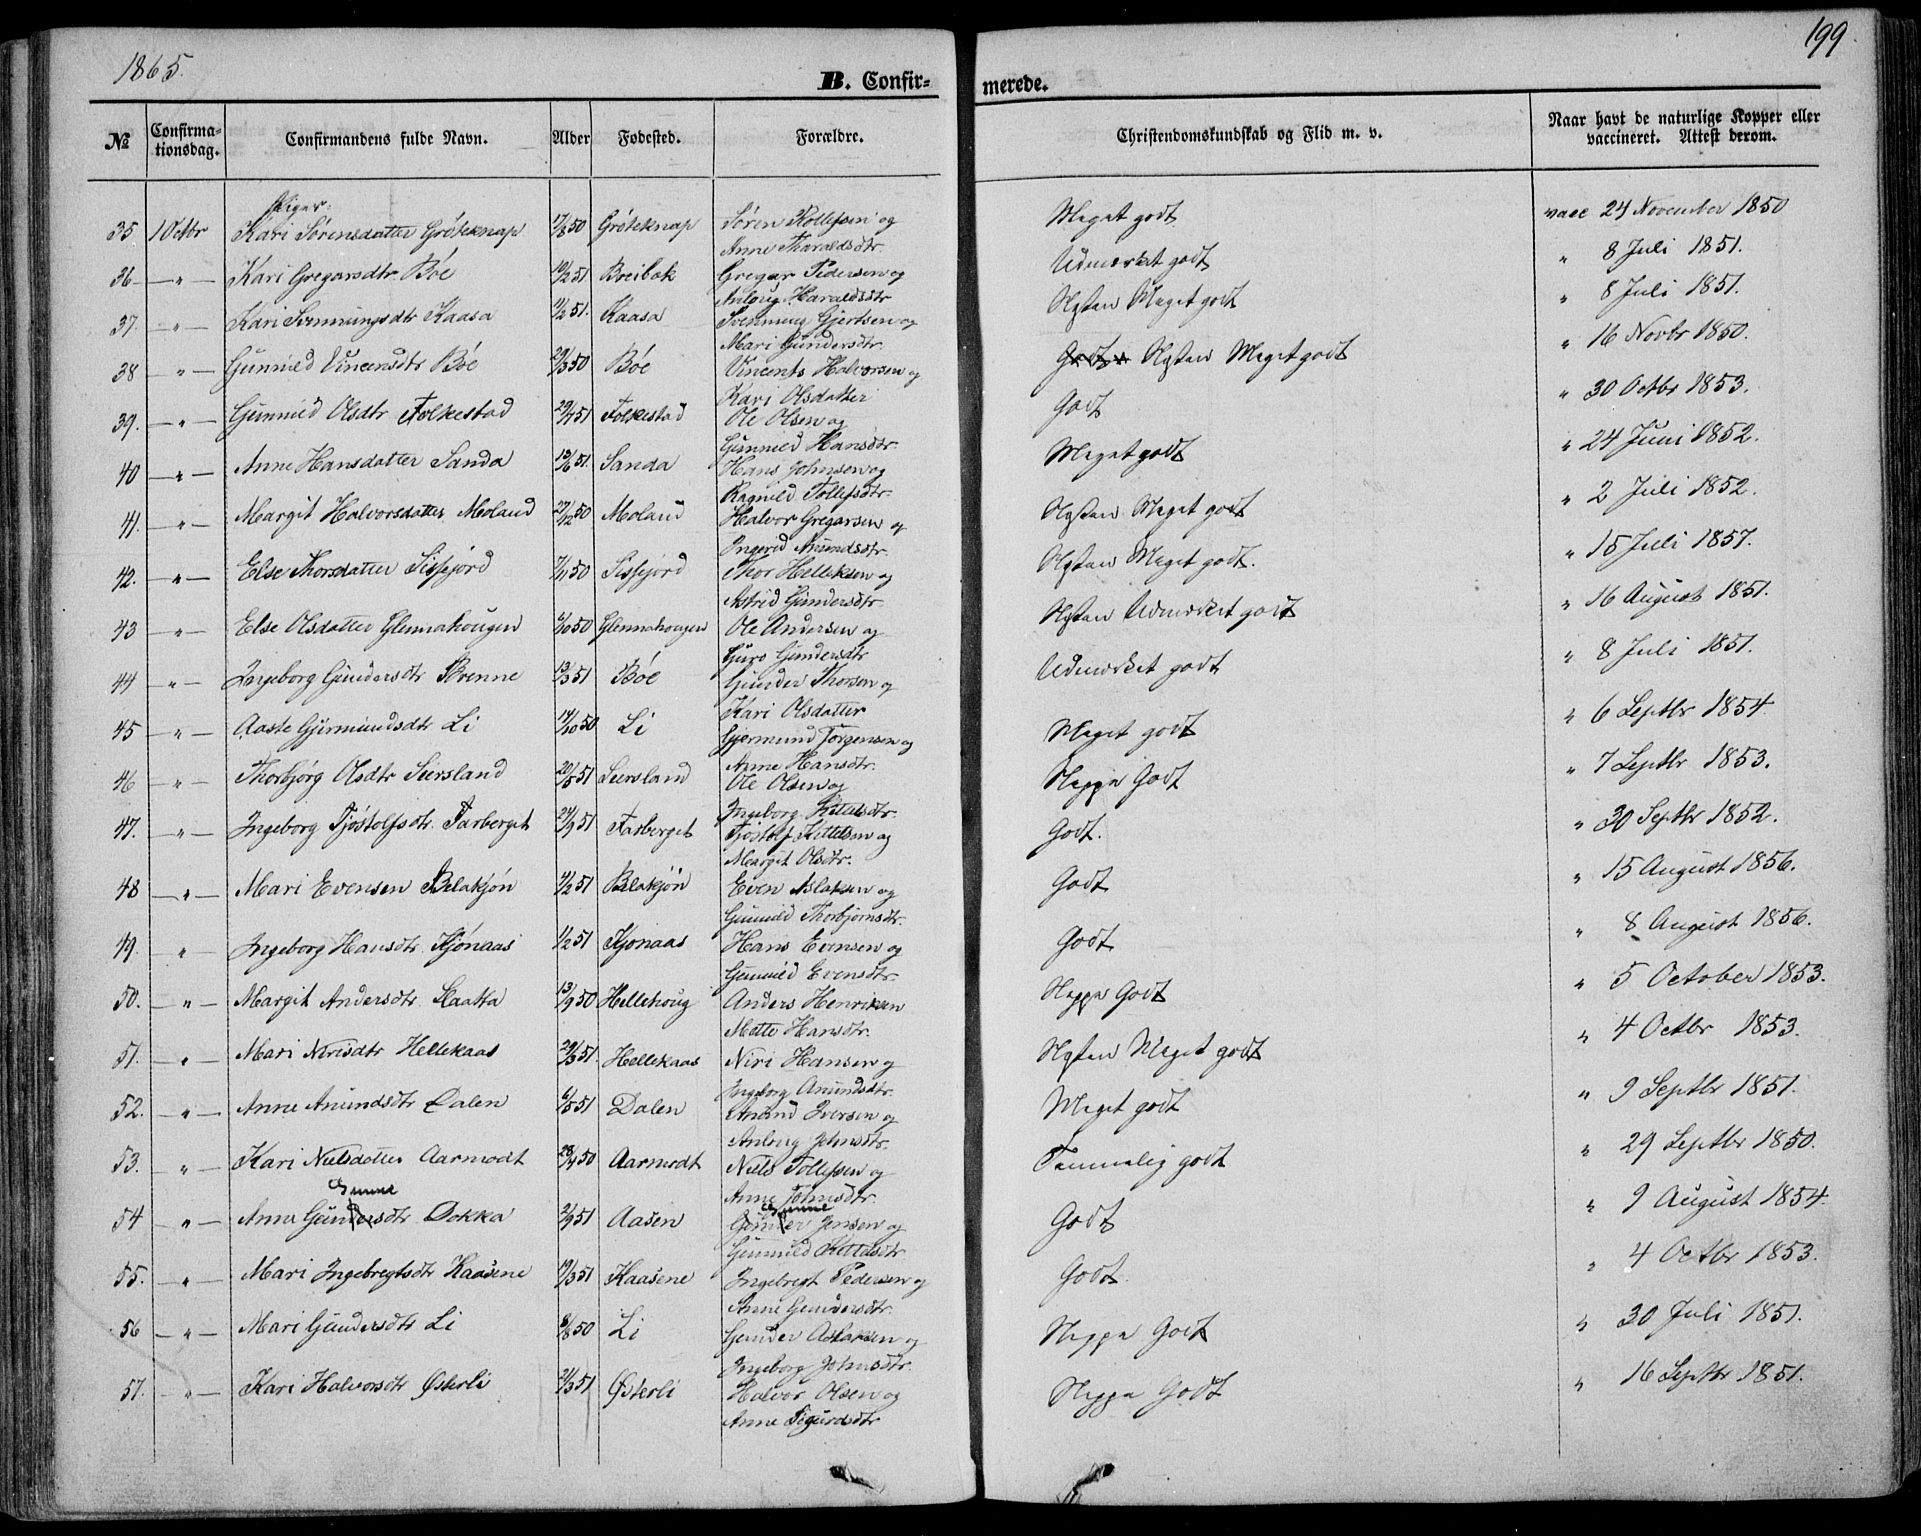 1865.
199
B. Confir-
merede.
No
Confirma-
tionsdag.
Confirmandens fulde Navn.
Alder
Fødested.
Forældre.
Christendomskundskab og Flid m. v.
Naar havt de naturlige Kopper eller
vaccineret. Attest derom.
Piger.
35 1 Octbr Kari Sörensdatter Gröteknap 17/8 50 Gröteknap Sören Tollefsen og Meget godt vacc 24 November 1850
Anne Tharaldsdtr.
36 — " — Kari Gregarsdtr Böe 19/2 51 Breibæk Gregar Pedersen og Udmærket godt " 8 Juli 1851.
Anloug Haraldsdtr
37. — " — Kari Svennungsdtr Kaasa 11/2 51. Kaasa Svennung Gjertsen og Næsten Meget godt " 8 Juli 1851.
Mari Gundersdtr.
38 — " — Gunnild Vincentsdtr Böe 29/3 50 Böe Vincents Halvorsen og Næsten Meget godt " 16 Novbr 1850.
Kari Olsdatter
39. — " — Gunnild Olsdtr Folkestad 29/4 51 Folkestad Ole Olsen og Godt " 30 Octbr 1853.
Gunnild Hansdtr.
40 — " — Anne Hansdatter Sanda 13/6 51. Sanda Hans Johnsen og Meget godt " 24 Juni 1852.
Ragnild Tollefsdtr.
41. — " — Margit Halvorsdatter Moland 27/12 50 Moland Halvor Gregarsen og Næsten Meget godt " 2 Juli 1852.
Ingerid Amundsdtr.
42. — " — Else Thorsdatter Sisjord 7/11 50 Sisjord Thor Helleksen og Næsten Meget godt. " 15 Juli 1857.
Astrid Gundersdtr.
43 — " — Else Olsdatter Glennahougen 6/10 50 Glennahougen Ole Andersen og Næsten Udmærket godt " 16 August 1851.
Guro Gundersdtr
44 — " — Ingeborg Gundersdtr Brenne 13/3 51 Böe Gunder Thorsen og Udmærket godt " 8 Juli 1851.
Kari Olsdatter
45 — " — Aaste Gjermundsdtr Li 14/10 50 Li Gjermund Torgersen og Meget godt " 6 Septbr 1854.
Anne Hansdtr.
46 — " — Thorbjörg Olsdtr Seiersland 20/5 51 Seiersland Ole Olsen og Neppe Godt " 7 Septbr 1853.
Ingeborg Kittelsdtr.
47. — " — Ingeborg Tjöstolfsdtr. Farberget 24/9 51 Farberget Tjöstolf Kittelsen og Godt. " 30 Septbr 1852.
Margit Olsdtr.
48 — " — Mari Evensen Bilakjön 4/2 51 Bilakjön Even Aslaksen og Godt " 15 August 1856.
Gunnild Thorbjörnsdtr.
49. " — Ingeborg Hansdtr. Kjönaas 1/2 51 Kjonaas Hans Evensen og Godt " 8 August 1856.
Gunnild Evensdtr.
50. — " — Margit Andersdtr. Slaatta 13/9 50 Hellehoug Anders Henriksen Neppe Godt " 5 October 1853.
Mette Hansdtr.
51. " Mari Nirisdtr Hellekaas 29/3 51. Hellekaas Niri Hansen og Næsten Meget godt " 4 Octbr 1853.
Ingeborg Amundsdtr.
52. " — Anne Amundsdtr Dalen 6/5 51 Dalen Amund Iversen og Meget godt " 9 Septbr 1851.
Anloug Johnsdtr.
53. " — Kari Nielsdatter Aarmodt 28/4 50 Aarmodt Niels Tollefsen og Temmelig godt " 29 Septbr 1850.
Anne Johnsdtr.
54 — " — Anne Gundersdtr Dokka 2/9 51 Aasen Gunder Jensen og Godt " 9 August 1854.
Gunnild Kittelsdtr
55. " — Mari Ingebregtsdtr Kaasene 19/3 51 Kaasene Ingebregt Pedersen og Godt. " 4 Octbr 1853.
Anne Gundersdtr.
56 — " — Mari Gundersdtr Li 8/8 50 Li Gunder Aslaksen og Neppe Godt " 30 Juli 1851.
Ingeborg Johnsdtr.
57. " — Kari Halvorsdtr Østerli 21/3 51 Østerli Halvor Olsen og Neppe Godt " 16 Septbr 1851.
Anne Sigurdsdtr